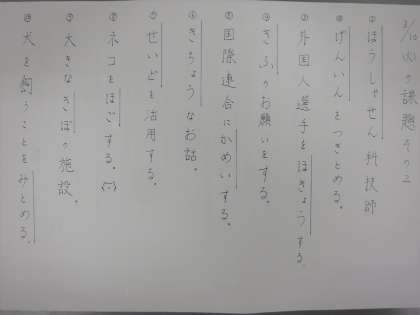 3/10(火)の課題その二
①ほうしゃせん科技師
②げんいんをつきとめる。
③外国人選手をほきょうする。
④きふのお願いをする。
⑤国際連合にかめいする。
⑥きちょうなお話。
⑦せいどを活用する。
⑧ネコをほごする。
⑨大きなきぼの施設。
⑩犬を飼うことをみとめる。